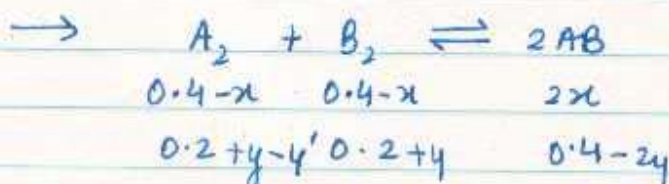 → A₂ + B₂ ⇌ 2AB
0.4-x 0.4-x 2x
0.2+y-y' 0.2+y 0.4-2y